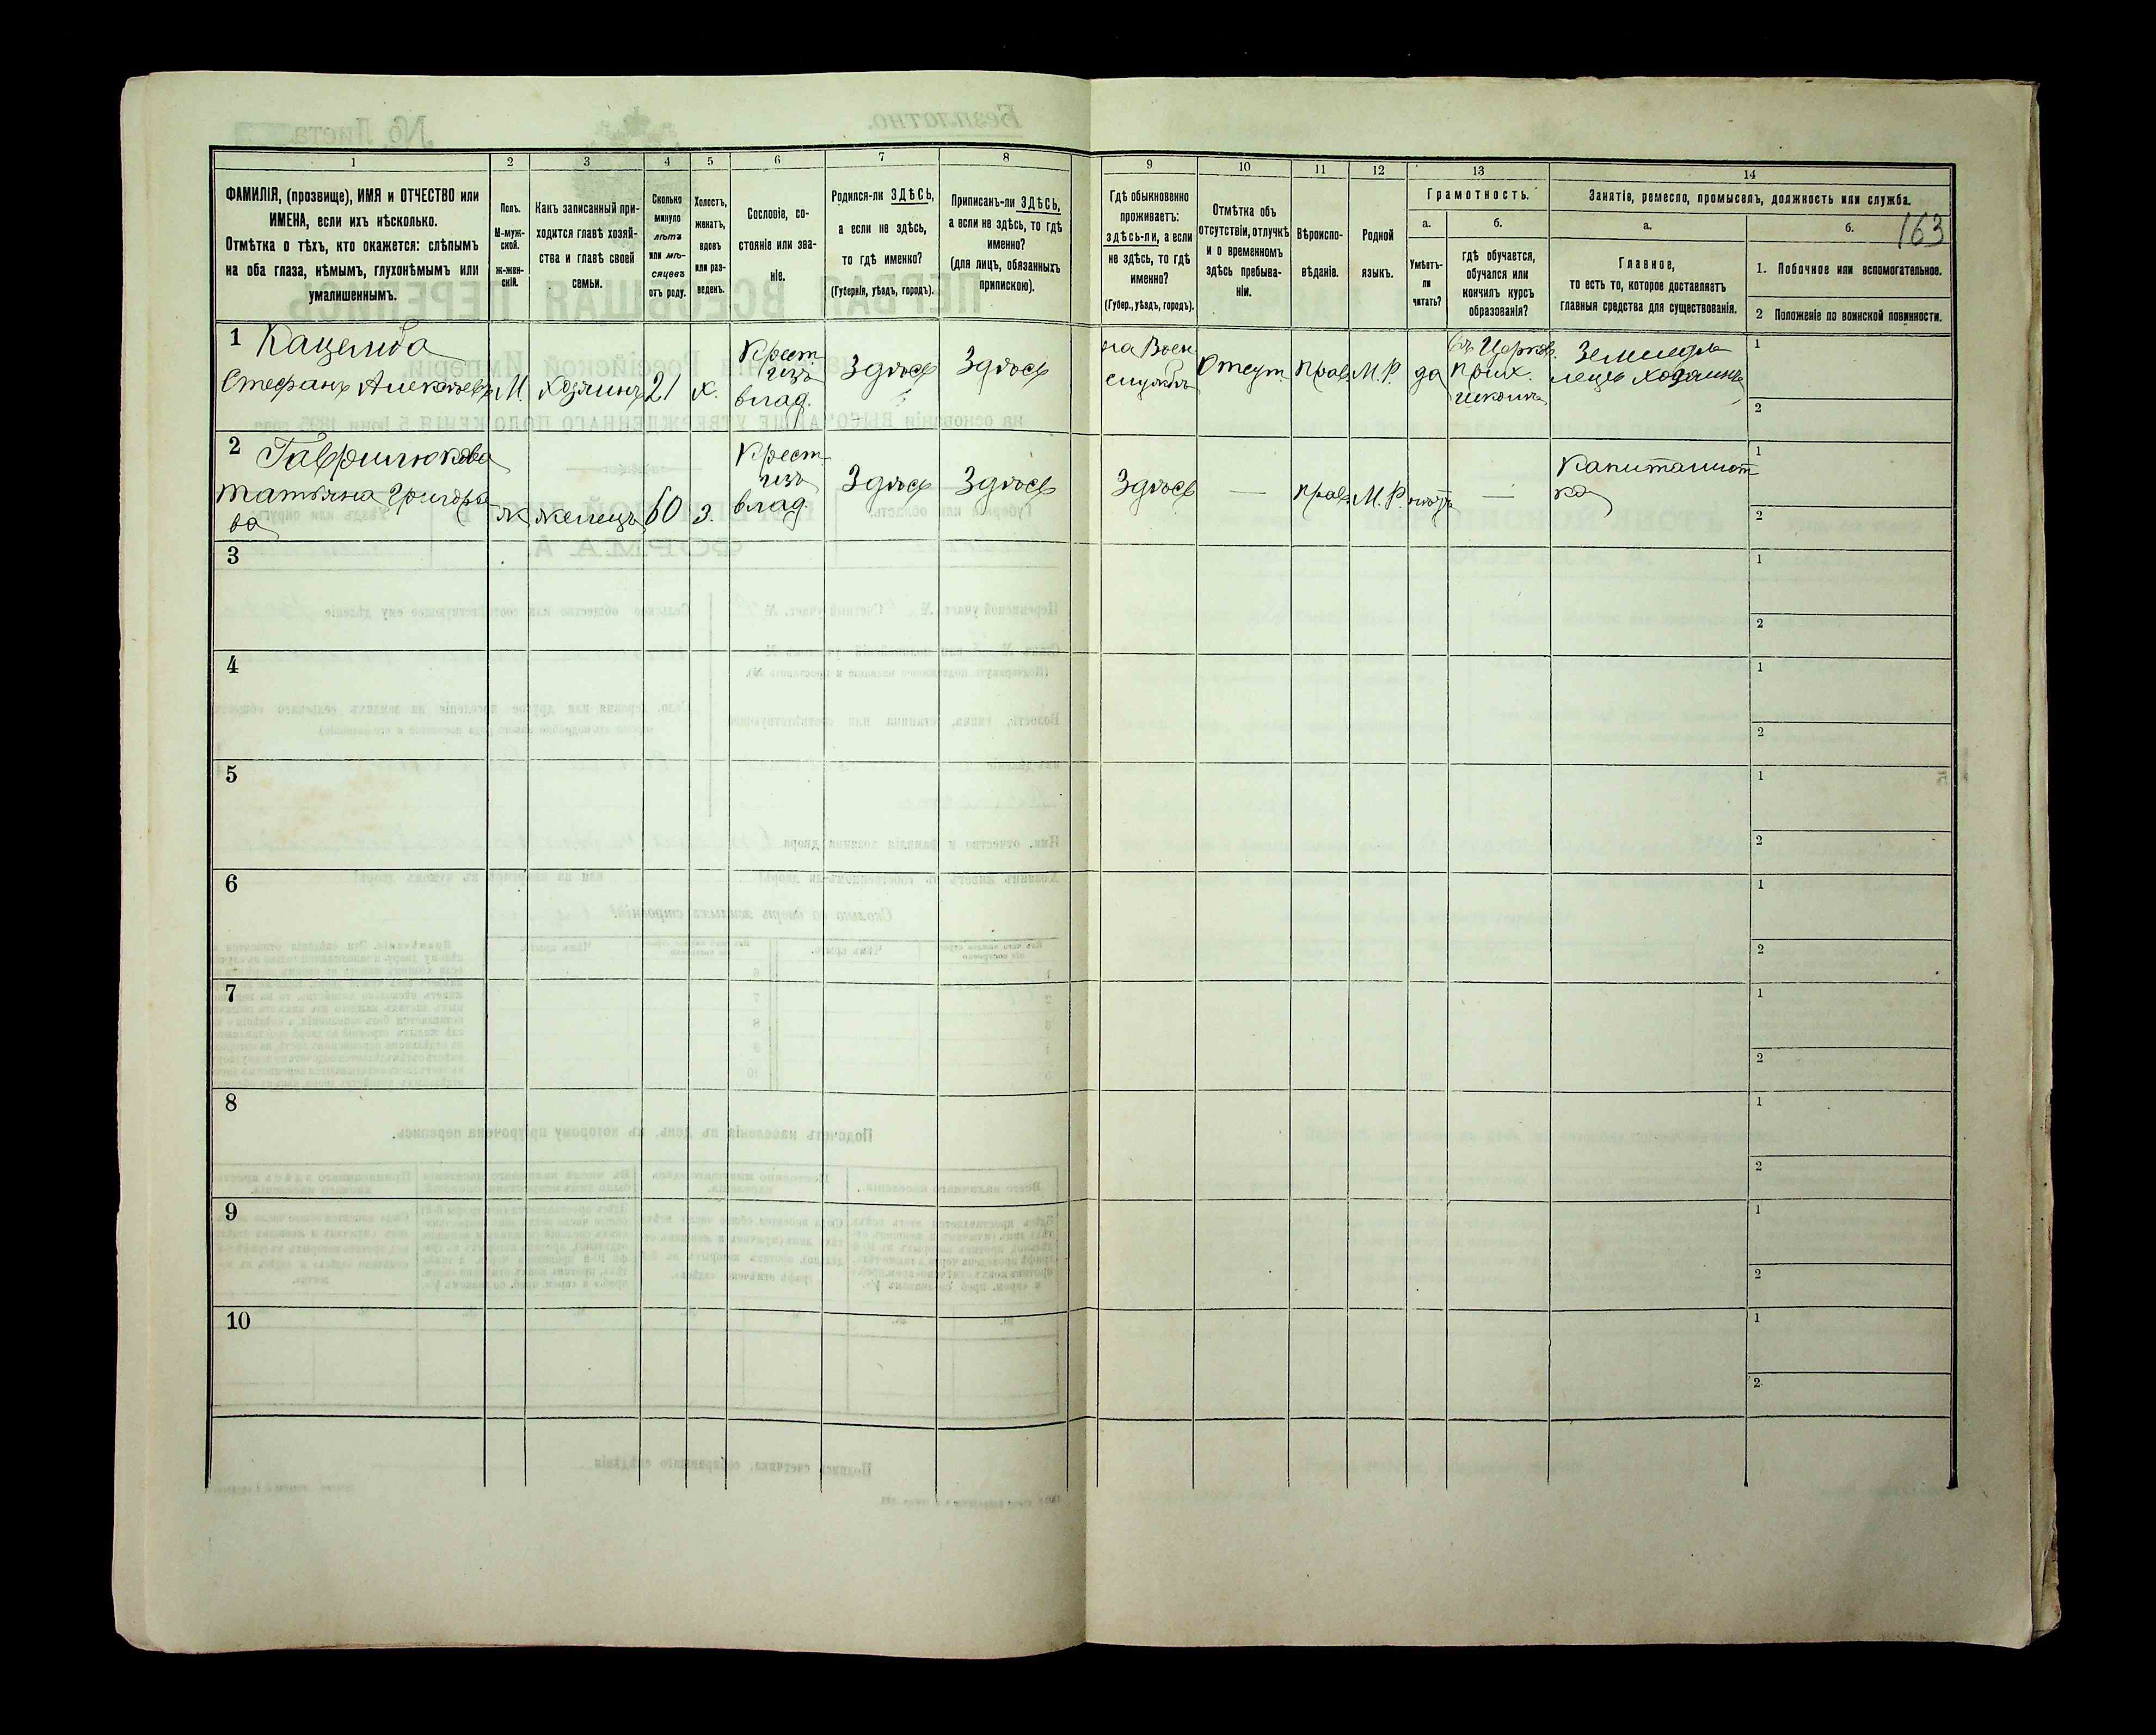 163
1
2
3
4
5
6
7
8
9
10
11
12
13
14
ФАМИЛІЯ, (прозвище), ИМЯ и ОТЧЕСТВО или
ИМЕНА, если ихъ нѣсколько.
Отмѣтка о тѣхъ, кто окажется: слѣпымъ
на оба глаза, нѣмымъ, глухонѣмымъ или
умалишеннымъ.
Полъ.
М-муж-
ской.
ж-жен-
скій.
Какъ записанный при-
ходится главѣ хозяй-
ства и главѣ своей
семьи.
Сколько
минуло
лѣтъ
или мѣ-
сяцевъ
отъ роду.
Холостъ,
женатъ,
вдовъ
или раз-
веденъ.
Сословіе, со-
стояніе или зва-
ніе.
Родился-ли ЗДѢСЬ,
а если не здѣсь,
то гдѣ именно?
(Губернія, уѣздъ, городъ).
Приписанъ-ли ЗДѢСЬ,
а если не здѣсь, то гдѣ
именно?
(для лицъ, обязанныхъ
припискою).
Гдѣ обыкновенно
проживаетъ:
здѣсь-ли, а если
не здѣсь, то гдѣ
именно?
(Губер., уѣздъ, городъ).
Отмѣтка объ
отсутствіи, отлучкѣ
и о временномъ
здѣсь пребыва-
ніи.
Вѣроиспо-
вѣданіе.
Родной
языкъ.
Грамотность.
а.
Умѣетъ-
ли
читать?
б.
гдѣ обучается,
обучался или
кончилъ курсъ
образованія?
Занятіе, ремесло, промыселъ, должность или служба.
а.
Главное,
то есть то, которое доставляетъ
главныя средства для существованія.
б.
1. Побочное или вспомогательное.
2 Положеніе по воинской повинности.
1
Стефанъ Алексѣевъ
М.
хозяинъ
21
х.
Крест
изъ
влад.
Здѣсь
Здѣсь
на Воен
службѣ
Отсут.
прав.
М.Р.
да
въ Церков.
прих.
школѣ
Земледѣ
лецъ хозяинъ
1
2
2
Гаврилюкова
Татьяна Григорье
ва
ж
жилецъ
60
з.
Крест
изъ
влад.
Здѣсь
Здѣсь
Здѣсь
—
прав.
М.Р.
нѣтъ
—
Капиталист
ка
1
2
3
1
2
4
1
2
5
1
2
6
1
2
7
1
2
8
1
2
9
1
2
10
1
2